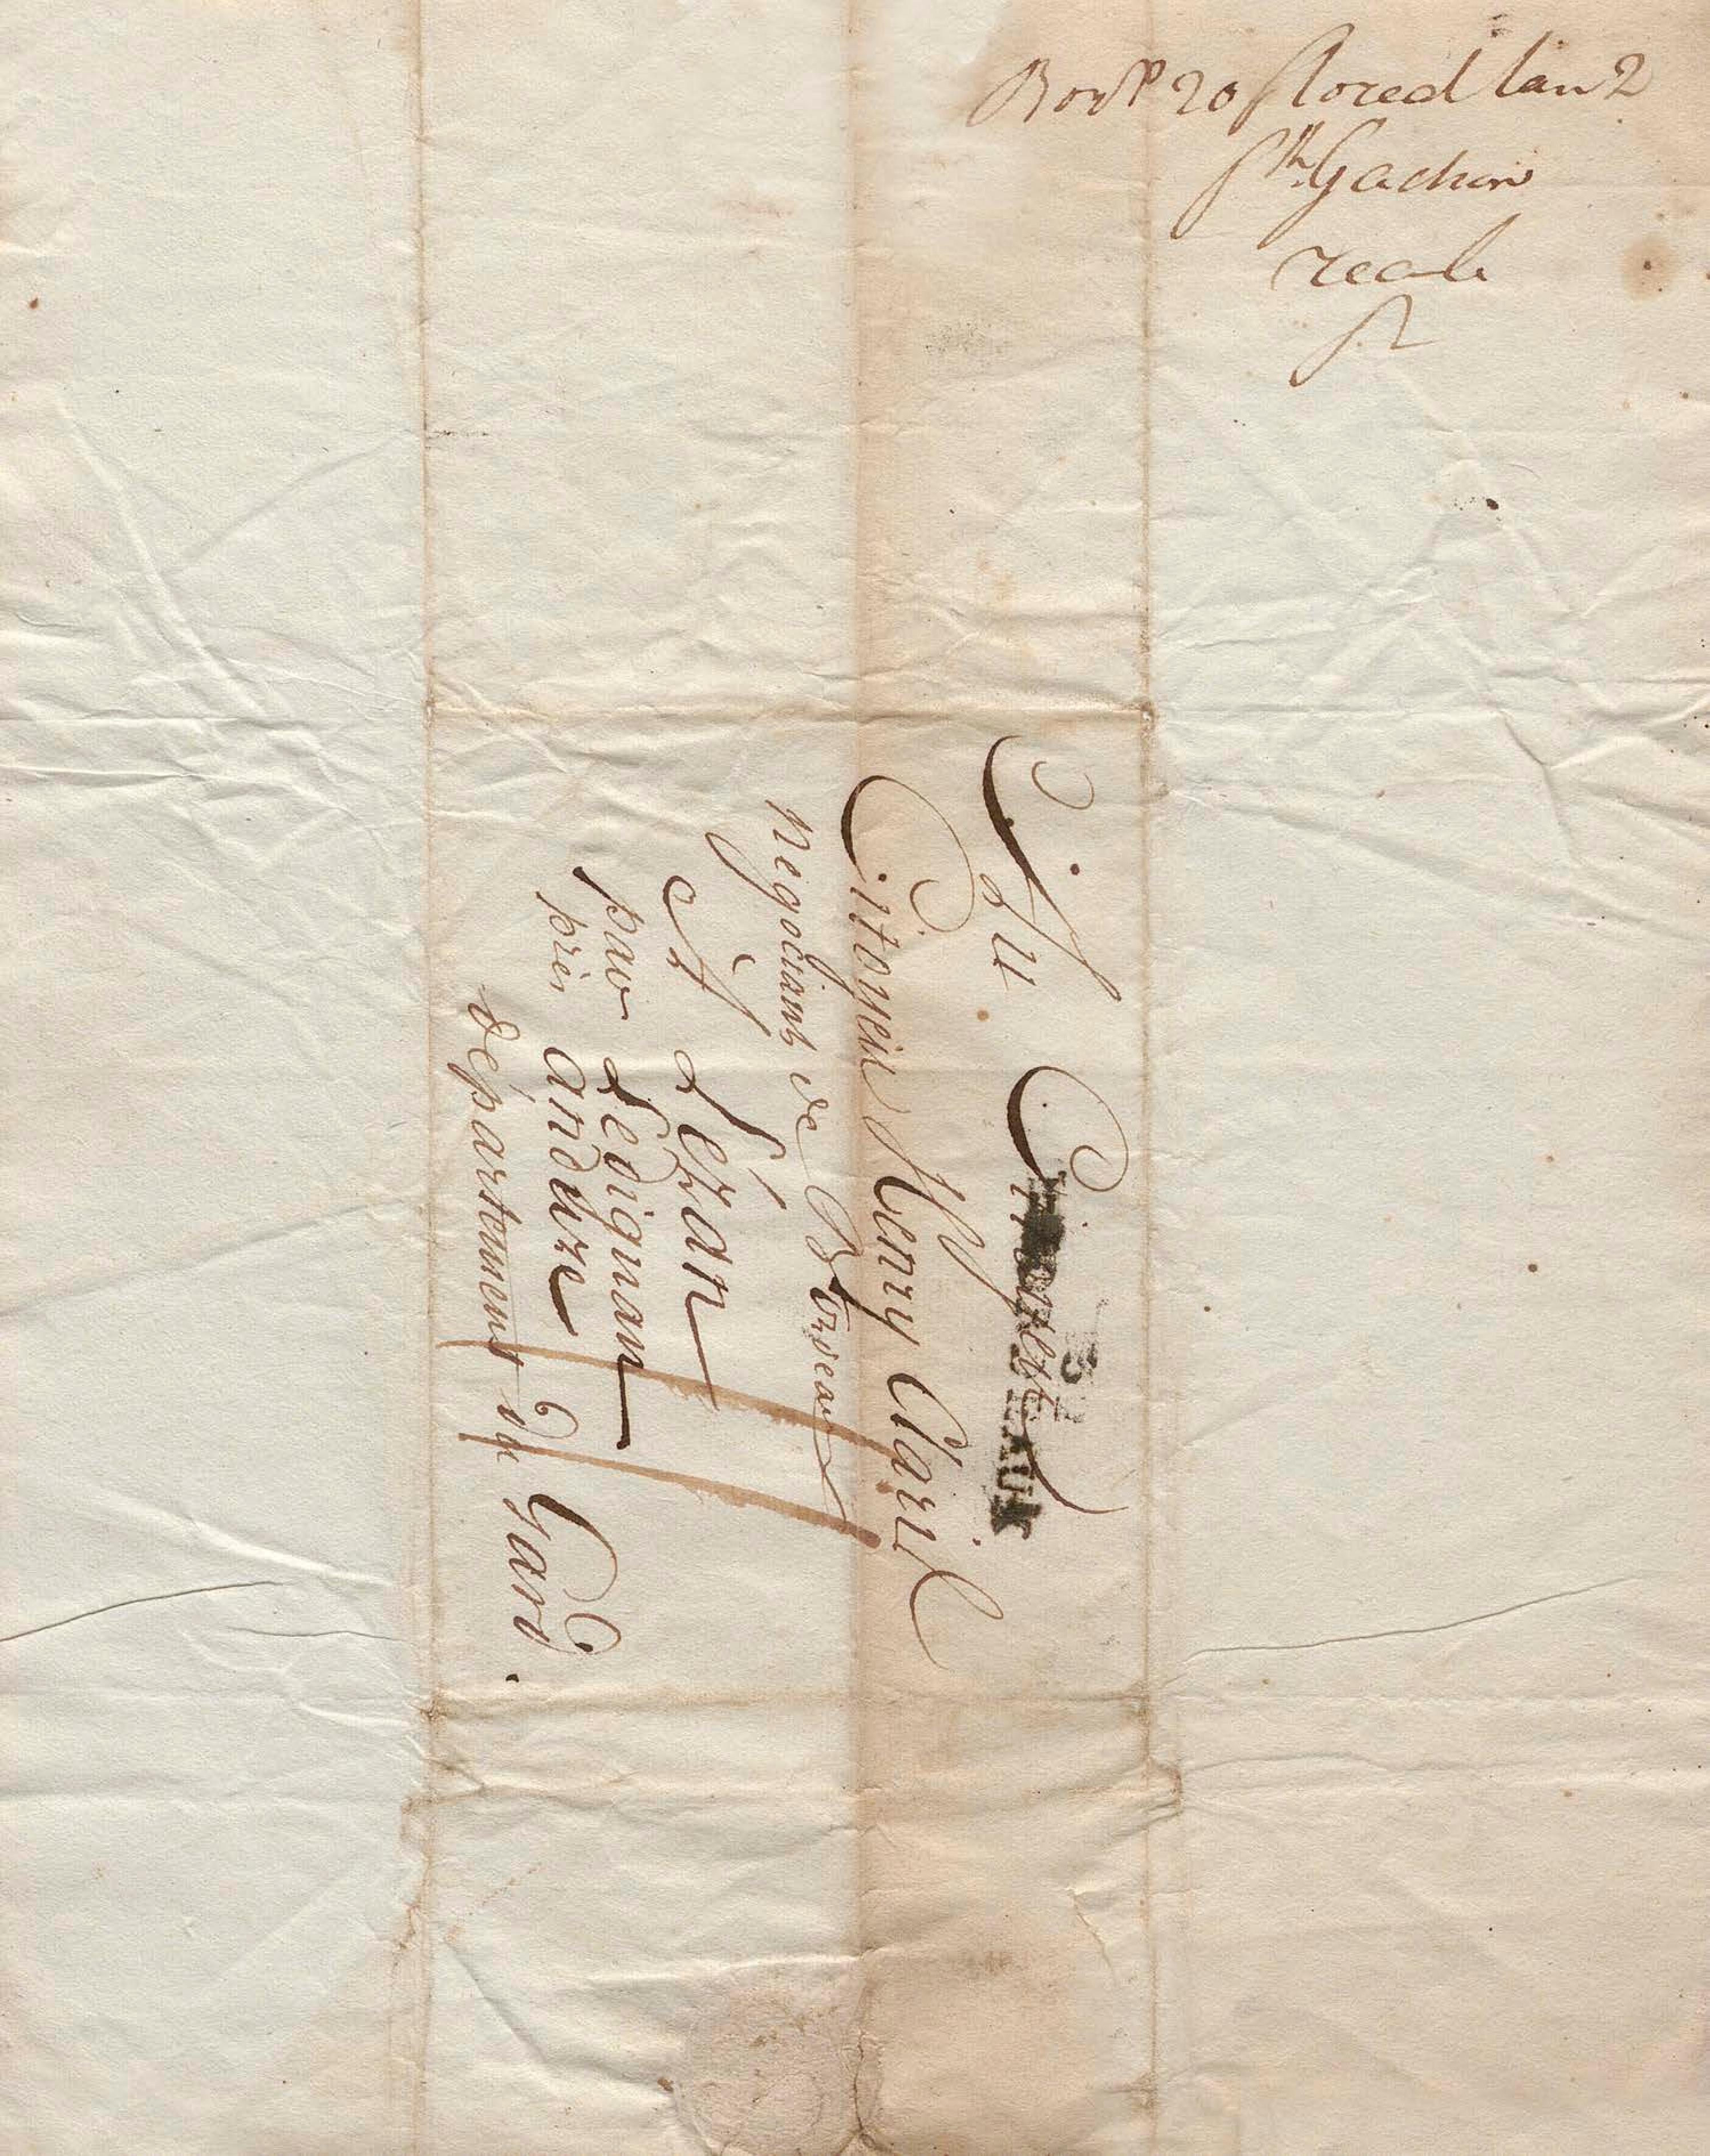 Bord.x 20 floreal lan 2
Ph. Gachon
Au Citoyen
Citoyen Henry Claris
negociant de Bordeaux
A Lezan
par Ledignan
près anduze
département du Gard.